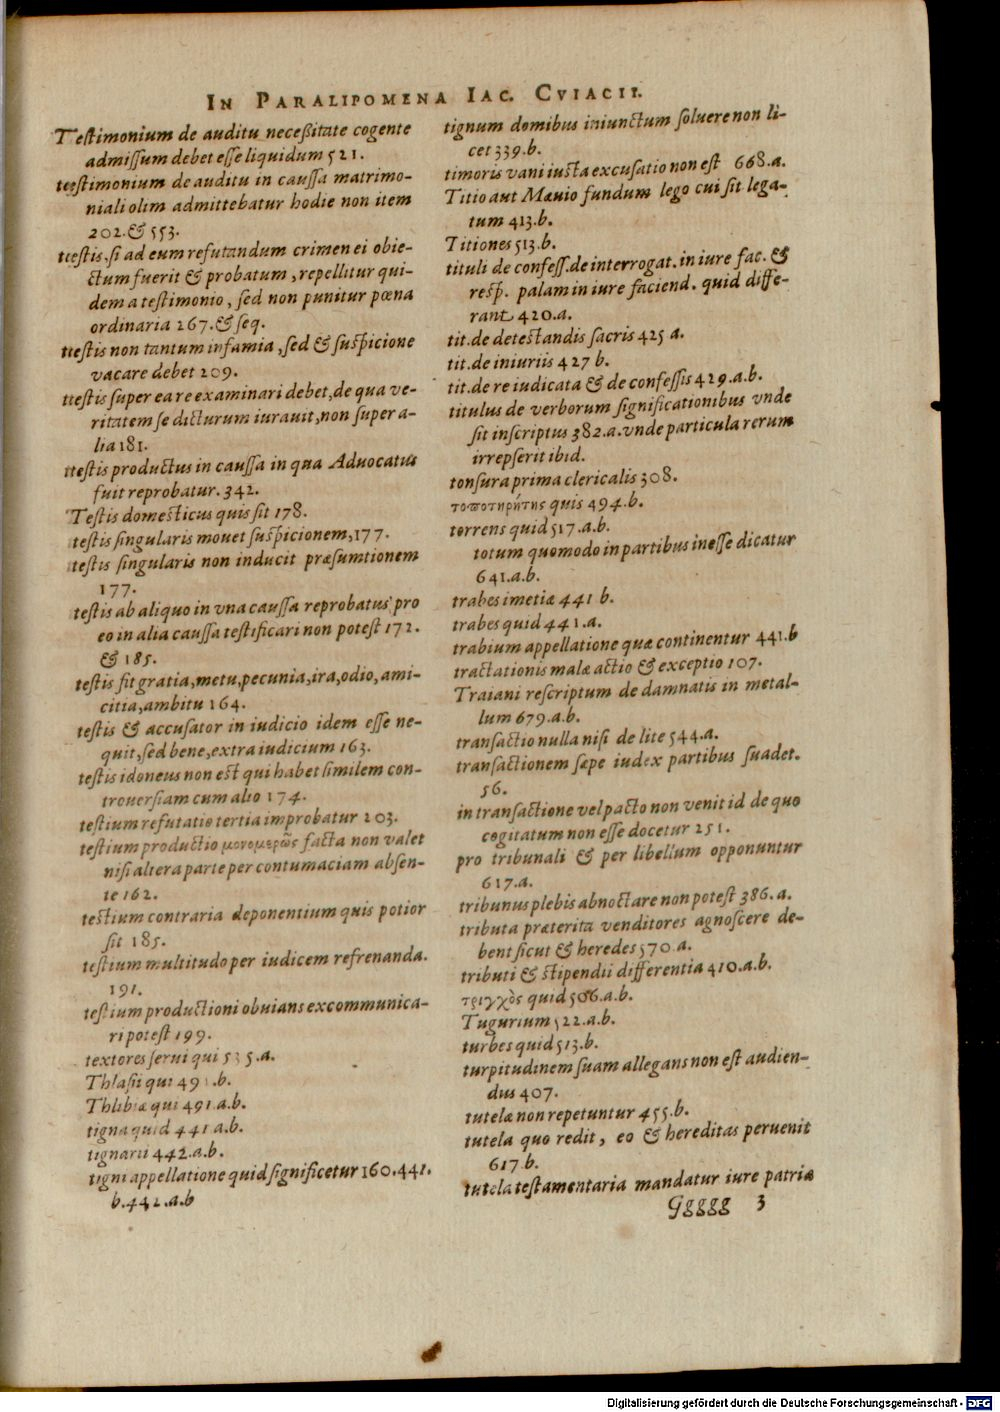 IN PARALIPOMENA IAC. CVIACII.
Testimonium de auditu neceßitate cogente
admissum debet esse liquidum 521.
testimonium de auditu in caussa matrimo-
niali olim admittebatur hodie non item
202. & 553.
testis si ad eum refutandum crimen ei obie-
ctum fuerit & probatum, repellitur qui-
dem a testimonio, sed non punitur pœna
ordinaria 267. & seq.
testis non tantum infamia, sed & suspicione
vacare debet 209.
testis super ea re examinari debet, de qua ve-
ritatem se dicturum iurauit, non super a-
lia 181.
testis productus in caussa in qua Aduocatus
fuit reprobatur. 342.
Testis domesticus quis sit 178.
testis singularis mouet suspicionem, 177.
testis singularis non inducit præsumtionem
177.
testis ab aliquo in vna caussa reprobatus pro
eo in alia caussa testificari non potest 172.
& 185.
testis fit gratia, metu, pecunia, ira, odio, ami-
citia, ambitu 164.
testis & accusator in iudicio idem esse ne-
quit, sed bene, extra iudicium 163.
testis idoneus non est qui habet similem con-
trouersiam cum alio 174.
testium refutatio tertia improbatur 203.
testium productio μονομερῶς facta non valet
nisi altera parte per contumaciam absen-
te 162.
testium contraria deponentium quis potior
sit 185.
testium multitudo per iudicem refrenanda.
191.
testium productioni obuians excommunica-
ri potest 199.
textores serui qui 535. a.
Thlasii qui 491. b.
Thlibiæ qui 491. a. b.
tigna quid 441 a. b.
tignarii 442. a. b.
tigni appellatione quid significetur 160. 441.
b. 442. a. b
tignum domibus iniunctum soluere non li-
cet 339. b.
timoris vani iusta excusatio non est 668. a.
Titio aut Mæuio fundum lego cui sit lega-
tum 413. b.
Titiones 513. b.
tituli de confess. de interrogat. in iure fac. &
resp. palam in iure faciend. quid diffe-
rant 420. a.
tit. de detestandis sacris 425 a.
tit. de iniuriis 427 b.
tit. de re iudicata & de confessis 429. a. b.
titulus de verborum significationibus vnde
sit inscriptus 382. a. vnde particula rerum
irrepserit ibid.
tonsura prima clericalis 308.
τοποτηρήτης quis 494. b.
torrens quid 517. a. b.
totum quomodo in partibus inesse dicatur
641. a. b.
trabes imetiæ 441 b.
trabes quid 441. a.
trabium appellatione quæ continentur 441. b
tractationis malæ actio & exceptio 107.
Traiani rescriptum de damnatis in metal-
lum 679. a. b.
transactio nulla nisi de lite 544. a.
transactionem sæpe iudex partibus suadet.
56.
in transactione vel pacto non venit id de quo
cogitatum non esse docetur 251.
pro tribunali & per libellum opponuntur
617. a.
tribunus plebis abnoctare non potest 386. a.
tributa præterita venditores agnoscere de-
bent sicut & heredes 570 a.
tributi & stipendii differentia 410. a. b.
τριγχὸς quid 506. a. b.
Tugurium 522. a. b.
turbes quid 513. b.
turpitudinem suam allegans non est audien-
dus 407.
tutelæ non repetuntur 455. b.
tutela quo redit, eo & hereditas peruenit
617 b.
tutela testamentaria mandatur iure patriæ
Ggggg 3
Digitalisierung gefördert durch die Deutsche Forschungsgemeinschaft - DFG